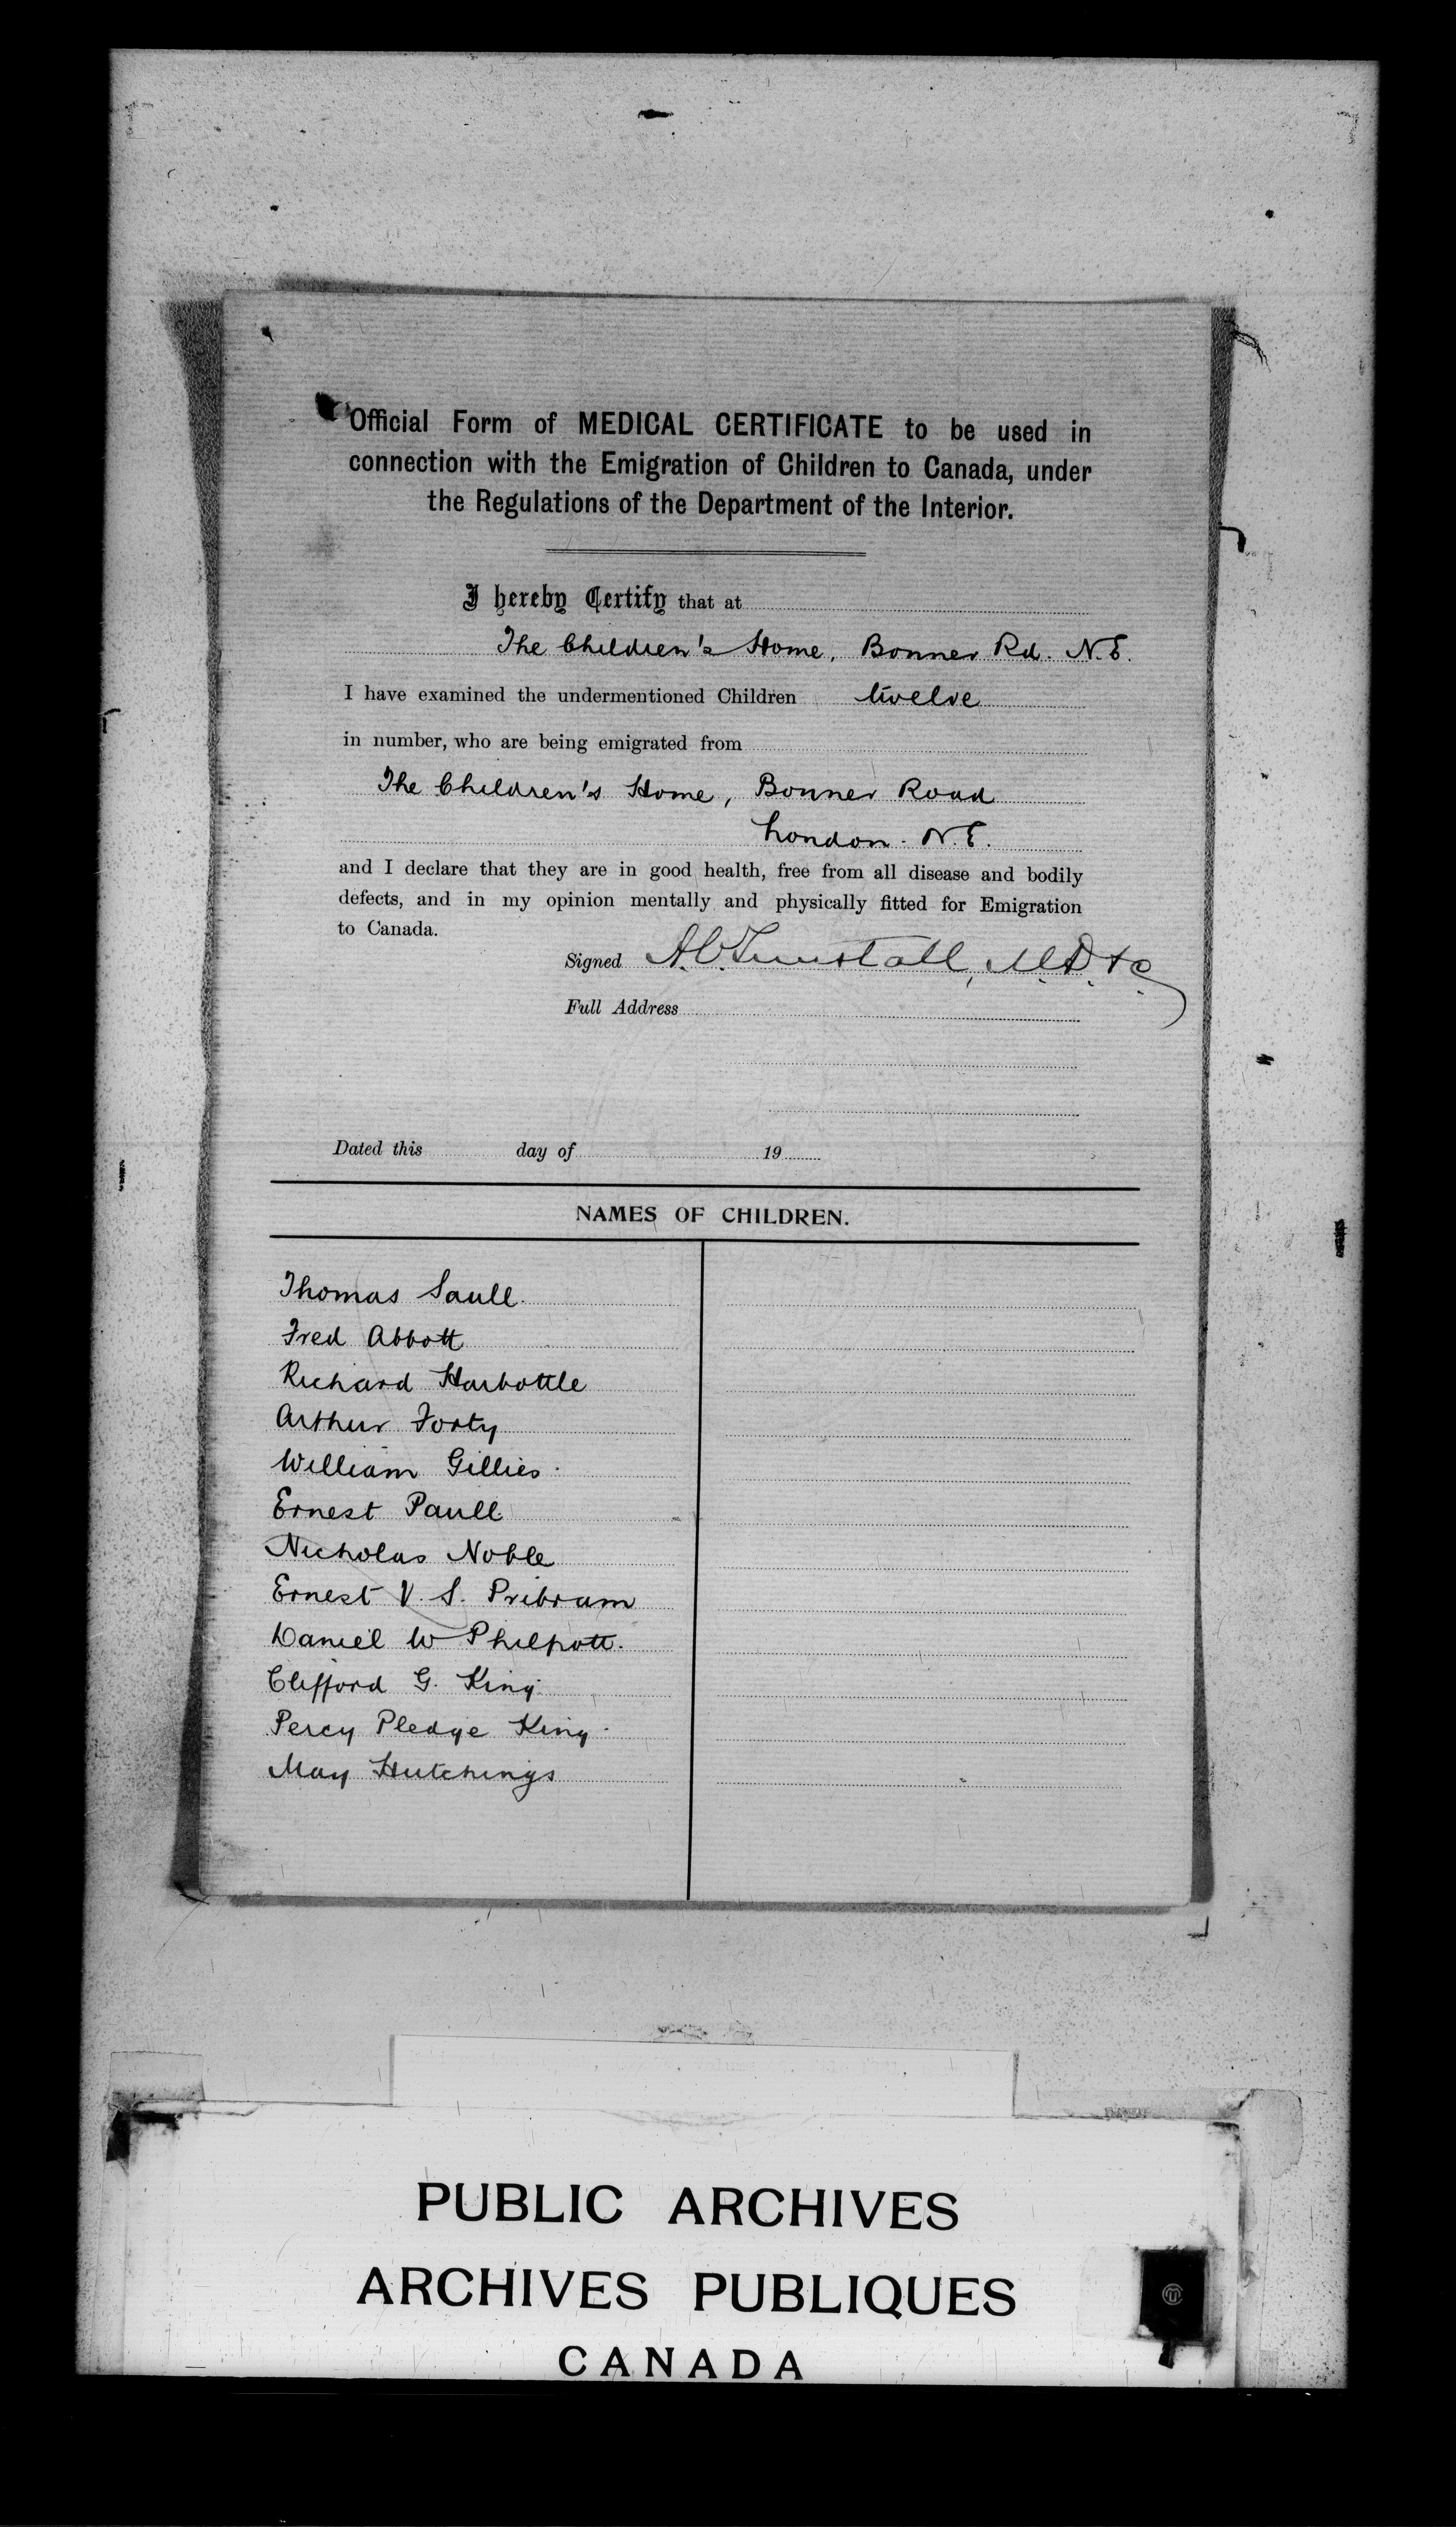 Official Form of MEDICAL CERTIFICATE to be used in
connection with the Emigration of Children to Canada, under
the Regulations of the Department of the Interior.
I hereby Certify that at
The Children's Home, Bonner Rd. N.E.
I have examined the undermentioned Children twelve
in number, who are being emigrated from
The Children's Home, Bonner Road
London. N.E.
and I declare that they are in good health, free from all disease and bodily
defects, and in my opinion mentally and physically fitted for Emigration
to Canada.
Signed A.C. Tunstall, M.D. &c
Full Address
Dated this day of 19
NAMES OF CHILDREN.
Thomas Saull.
Fred Abbott
Richard Harbottle
Arthur Forty
William Gillies.
Ernest Paull
Nicholas Noble
Ernest V. S. Pribram
Daniel W Philpott.
Clifford G. King.
Percy Pledge King.
May Hutchings
PUBLIC ARCHIVES
ARCHIVES PUBLIQUES
CANADA